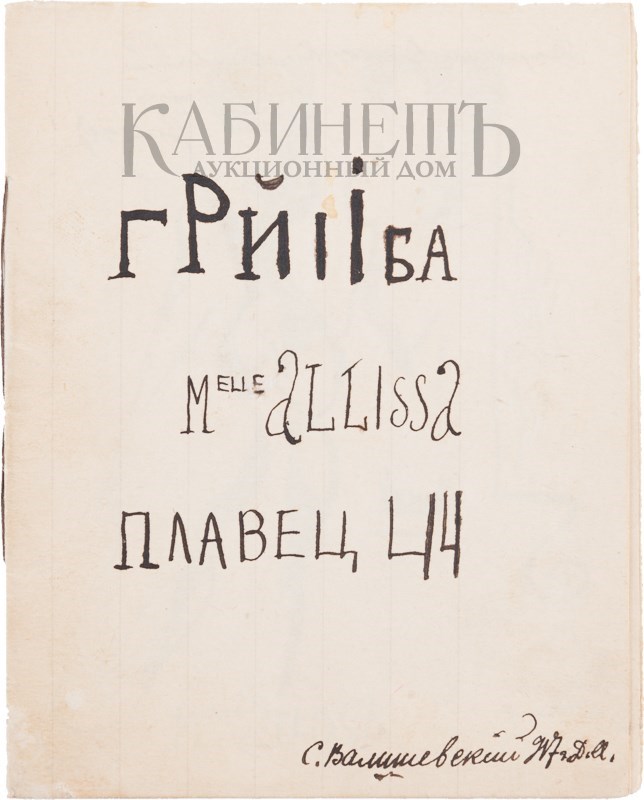 КАБИНЕТЪ
АУКЦИОННЫЙ ДОМ
ГРЙІІБА
Mелле aLLISSa
ПЛАВЕЦ
С. Валишевский